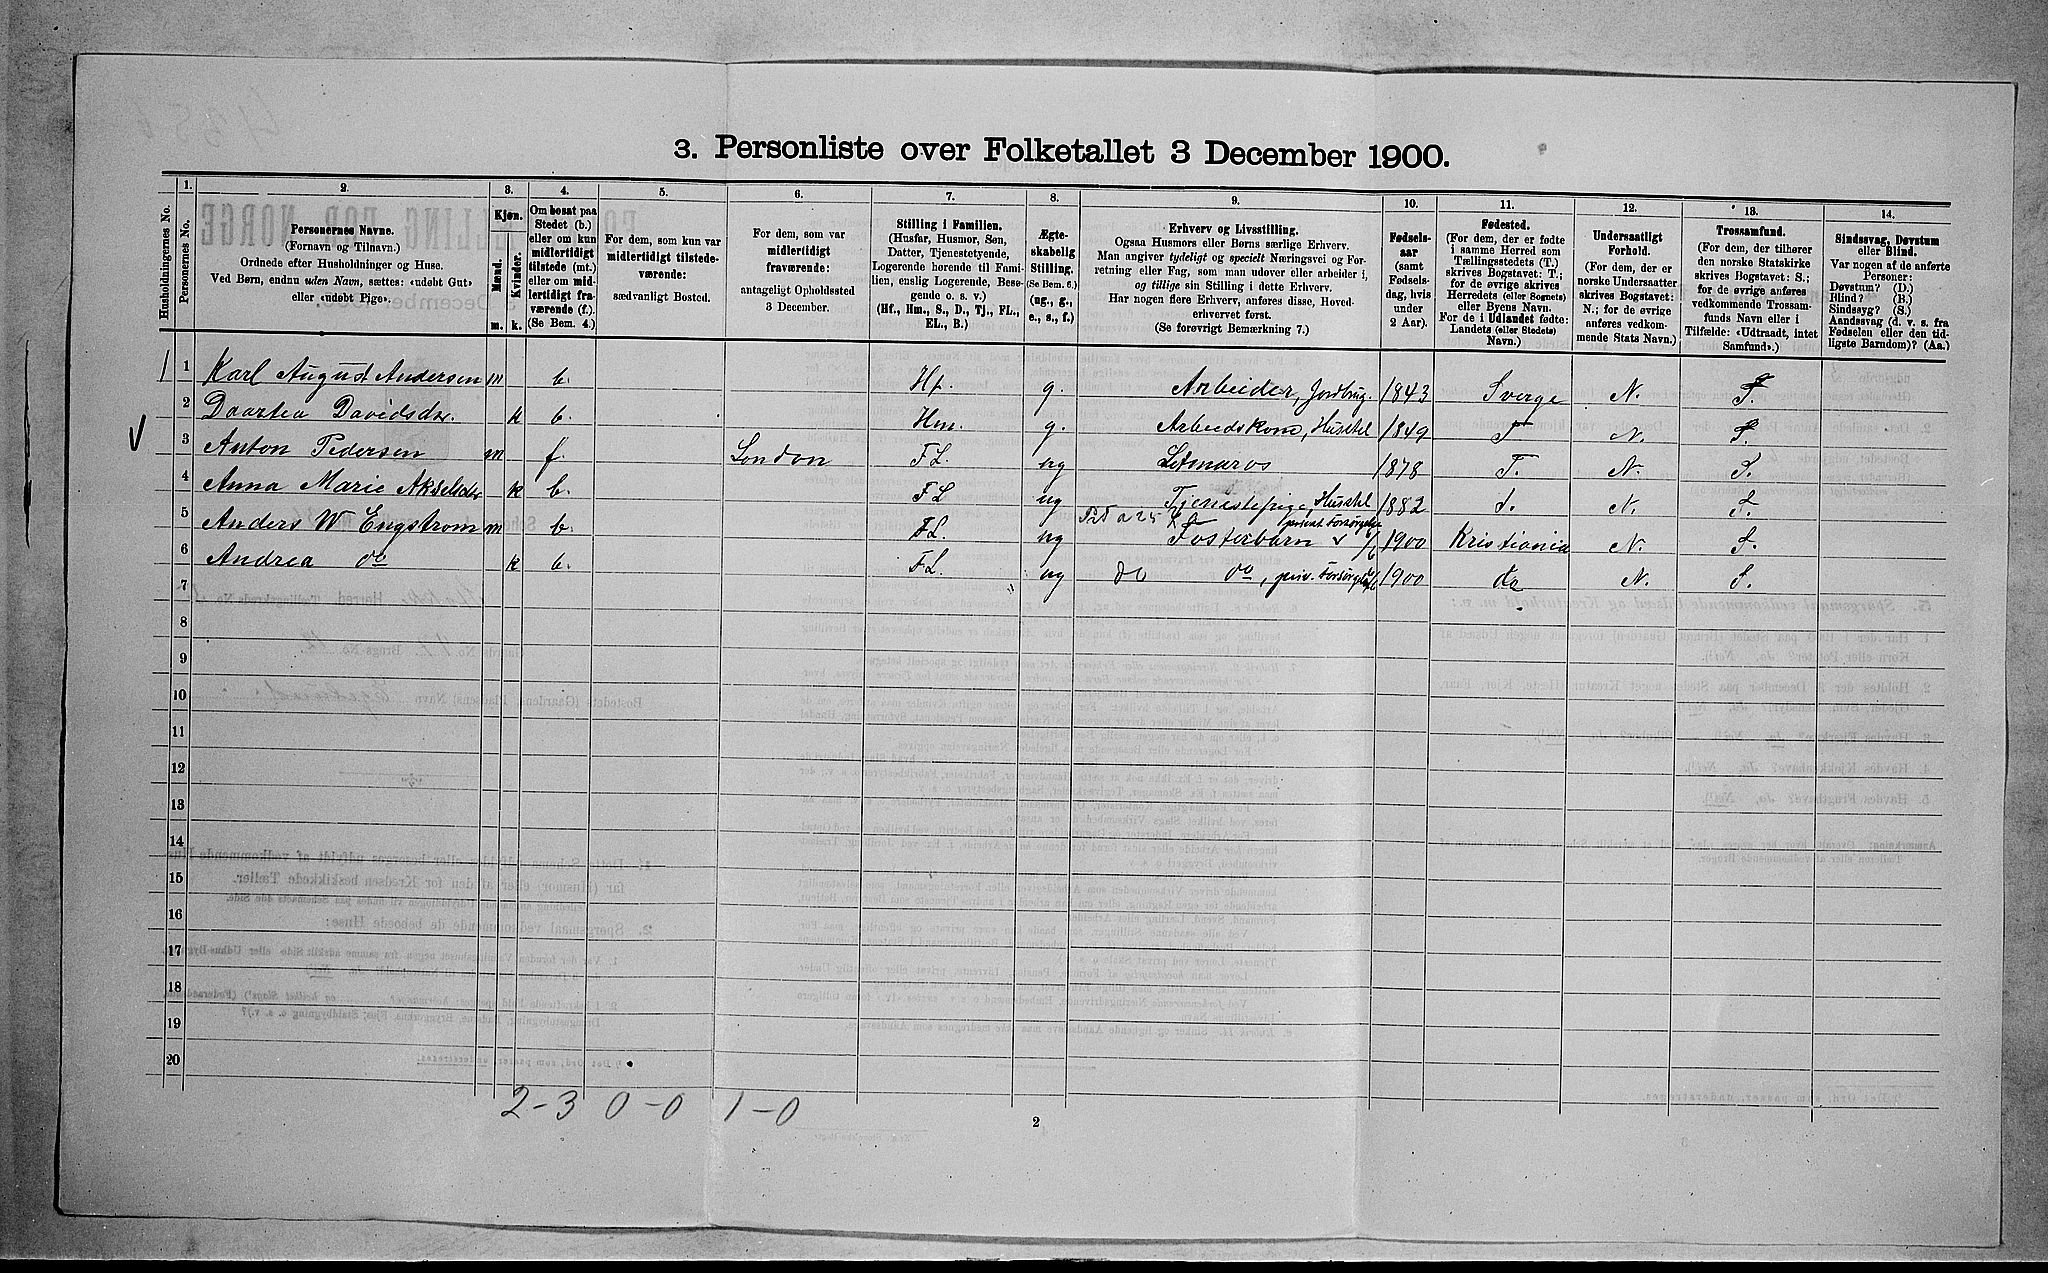 3. Personliste over Folketallet 3 December 1900.
Husholdningernes No.
1.
Personernes No.
2.
Personernes Navne.
(Fornavn og Tilnavn.)
Ordnede efter Husholdninger og Huse.
Ved Børn, endnu uden Navn, sættes: «udøbt Gut»
eller «udøbt Pige».
3.
Kjøn.
Mænd.
Kvinder.
m.
k.
4.
Om bosat paa
Stedet (b.)
eller om kun
midlertidigt
tilstede (mt.)
eller om mid-
lertidigt fra-
værende (f.).
(Se Bem. 4.)
5.
For dem, som kun var
midlertidigt tilstede-
værende:
sædvanligt Bosted.
6.
For dem, som var
midlertidigt
fraværende:
antageligt Opholdssted
3 December.
7.
Stilling i Familien.
(Husfar, Husmor, Søn,
Datter, Tjenestetyende,
Logerende hørende til Fami-
lien, enslig Logerende, Besø-
gende o. s. v.)
(Hf., Hm., S., D., Tj., FL.,
EL., B.)
8.
Ægte-
skabelig
Stilling.
(Se Bem. 6.)
(ug., g.,
e., s., f.)
9.
Erhverv og Livsstilling.
Ogsaa Husmors eller Børns særlige Erhverv.
Man angiver tydeligt og specielt Næringsvei og For-
retning eller Fag, som man udøver eller arbeider i,
og tillige sin Stilling i dette Erhverv.
Har nogen flere Erhverv, anføres disse, Hoved-
erhvervet først.
(Se forøvrigt Bemærkning 7.)
10.
Fødsels-
aar
(samt
Fødsels-
dag, hvis
under
2 Aar).
11.
Fødested.
(For dem, der er fødte
i samme Herred som
Tællingsstedets (T.)
skrives Bogstavet: T.;
for de øvrige skrives
Herredets (eller Sognets)
eller Byens Navn.
For de i Udlandet fødte:
Landets (eller Stedets)
Navn.)
12.
Undersaatligt
Forhold.
(For dem, der er
norske Undersaatter
skrives Bogstavet:
N.; for de øvrige
anføres vedkom-
mende Stats Navn.)
13.
Trossamfund.
(For dem, der tilhører
den norske Statskirke
skrives Bogstavet: S.;
for de øvrige anføres
vedkommende Trossam-
funds Navn eller i
Tilfælde: «Udtraadt, intet
Samfund».)
14.
Sindssvag, Døvstum
eller Blind.
Var nogen af de anførte
Personer:
Døvstum? (D.)
Blind? (B.)
Sindssyg? (S.)
Aandssvag (d. v. s. fra
Fødselen eller den tid-
ligste Barndom)? (Aa.)
1 1 Karl August Andersen m b. Hf. g. Arbeider, Jordbrug. 1843 Sverge N. S.
2 Daartea Davidsdr. k b. Hm. g. Arbeidskone, Husstel 1849 T N. S.
3 Anton Pedersen m f. London FL. ug 1878 T. N. S.
4 Anna Marie Akselsdr k b. FL ug Tjenestepige, Husstel 1882 d. N. S.
5 Anders W Engstrom m b. FL. ug Fosterbarn privat Forsørgelse 1900 Kristiania N. S.
6 Andrea do k b. FL. ug do do, priv. Forsørgelse 1900 do N. S.
7
8
9
10
11
12
13
14
15
16
17
18
19
20
2-3 0-0 1-0
2